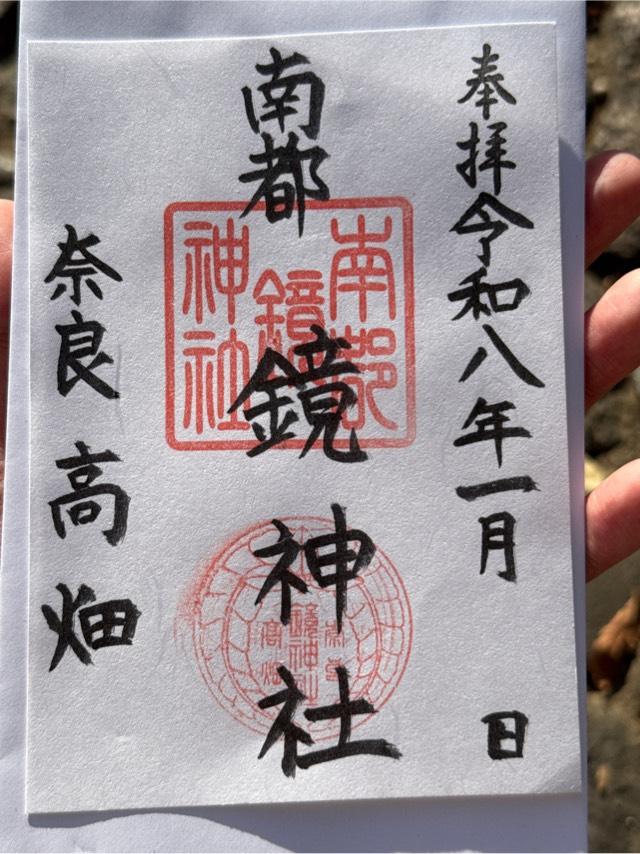 奉拝令和八年一月 日
南都鏡神社
奈良高畑
南都
鏡
神社
奈良
鏡神社
高畑